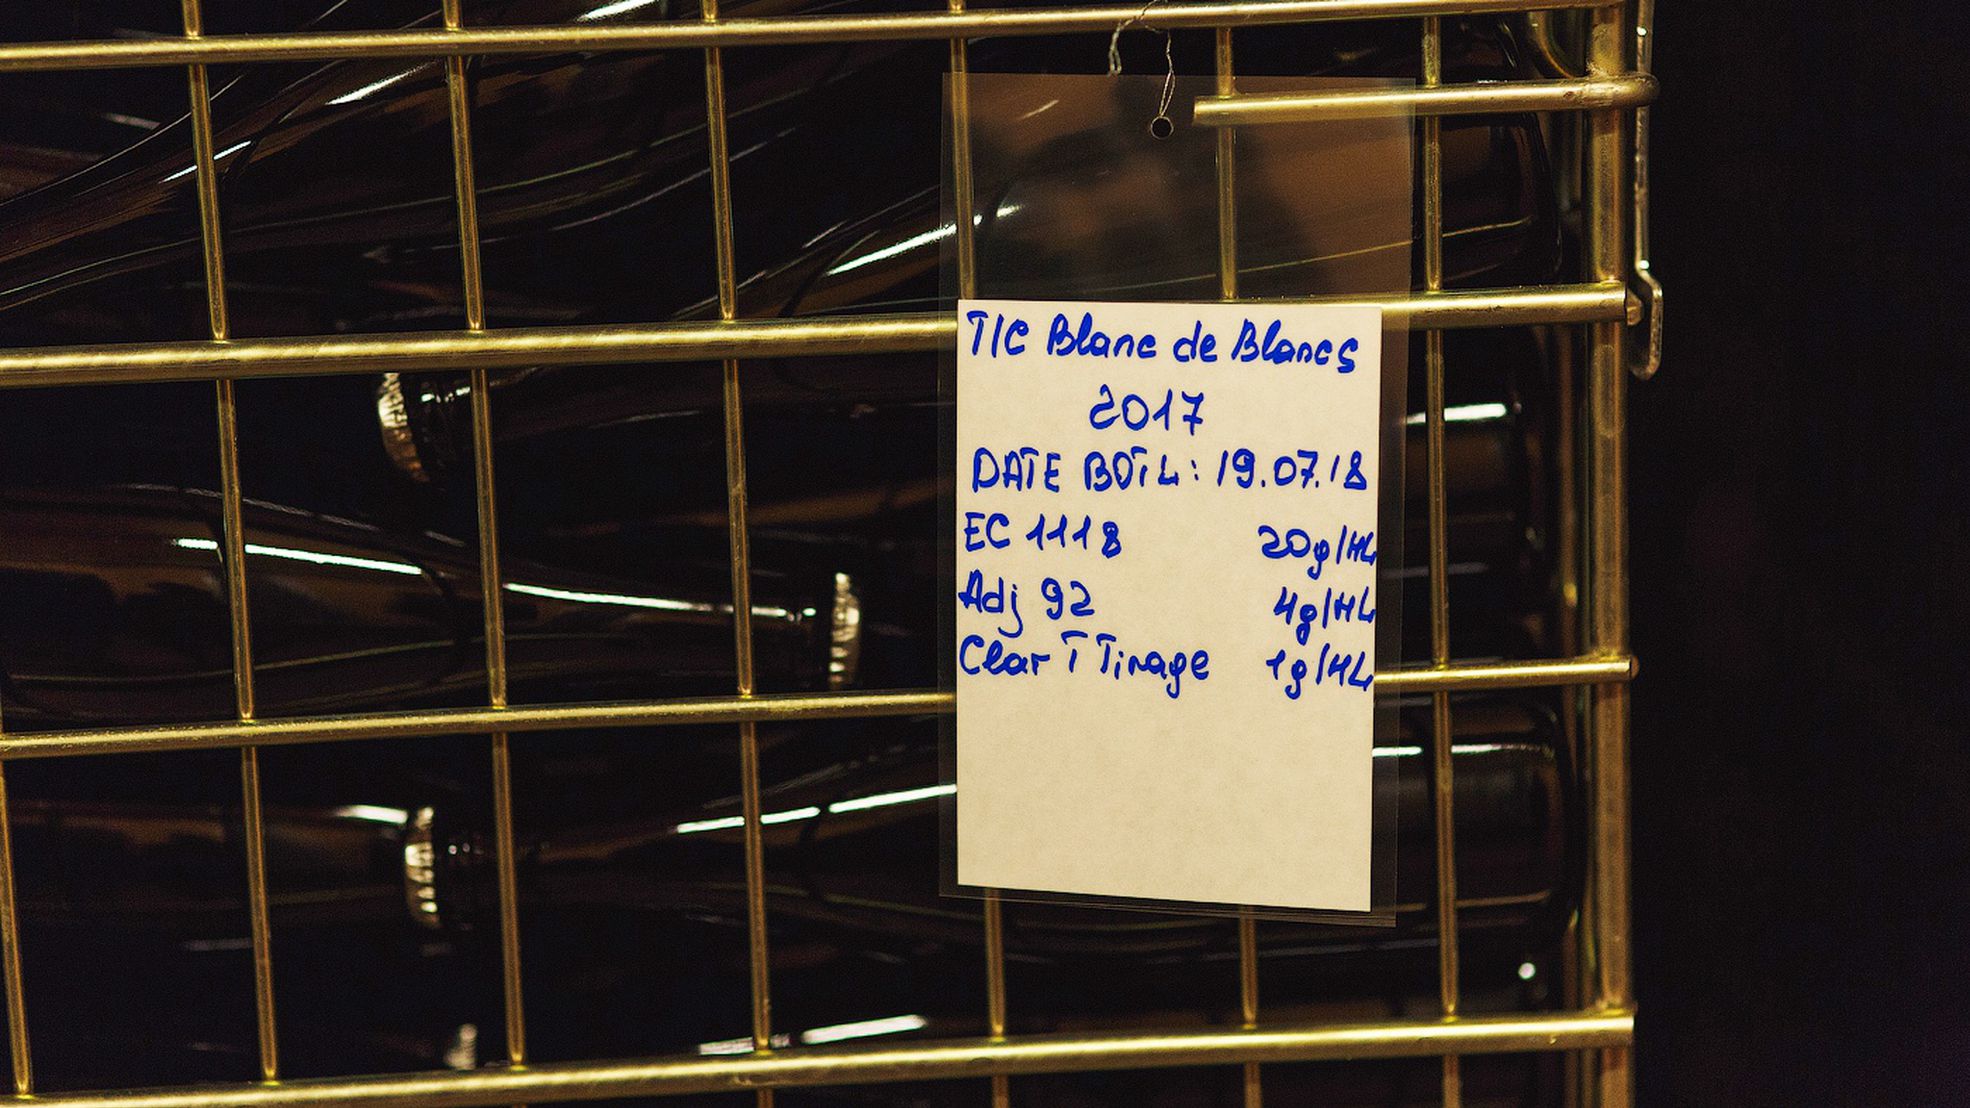 T/C Blanc de Blancs
2017
DATE BOTL: 19.07.18
EC 1118 20g/HL
Adj 92 4g/HL
Clar T Tirage 1g/HL